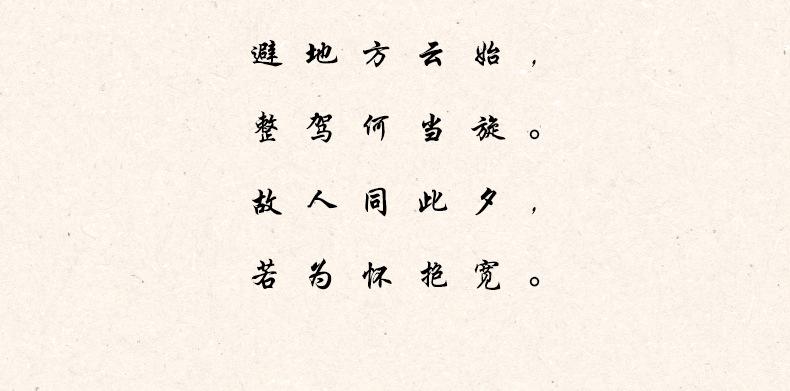 避地方云始，
整驾何当旋。
故人同此夕，
若为怀抱宽。